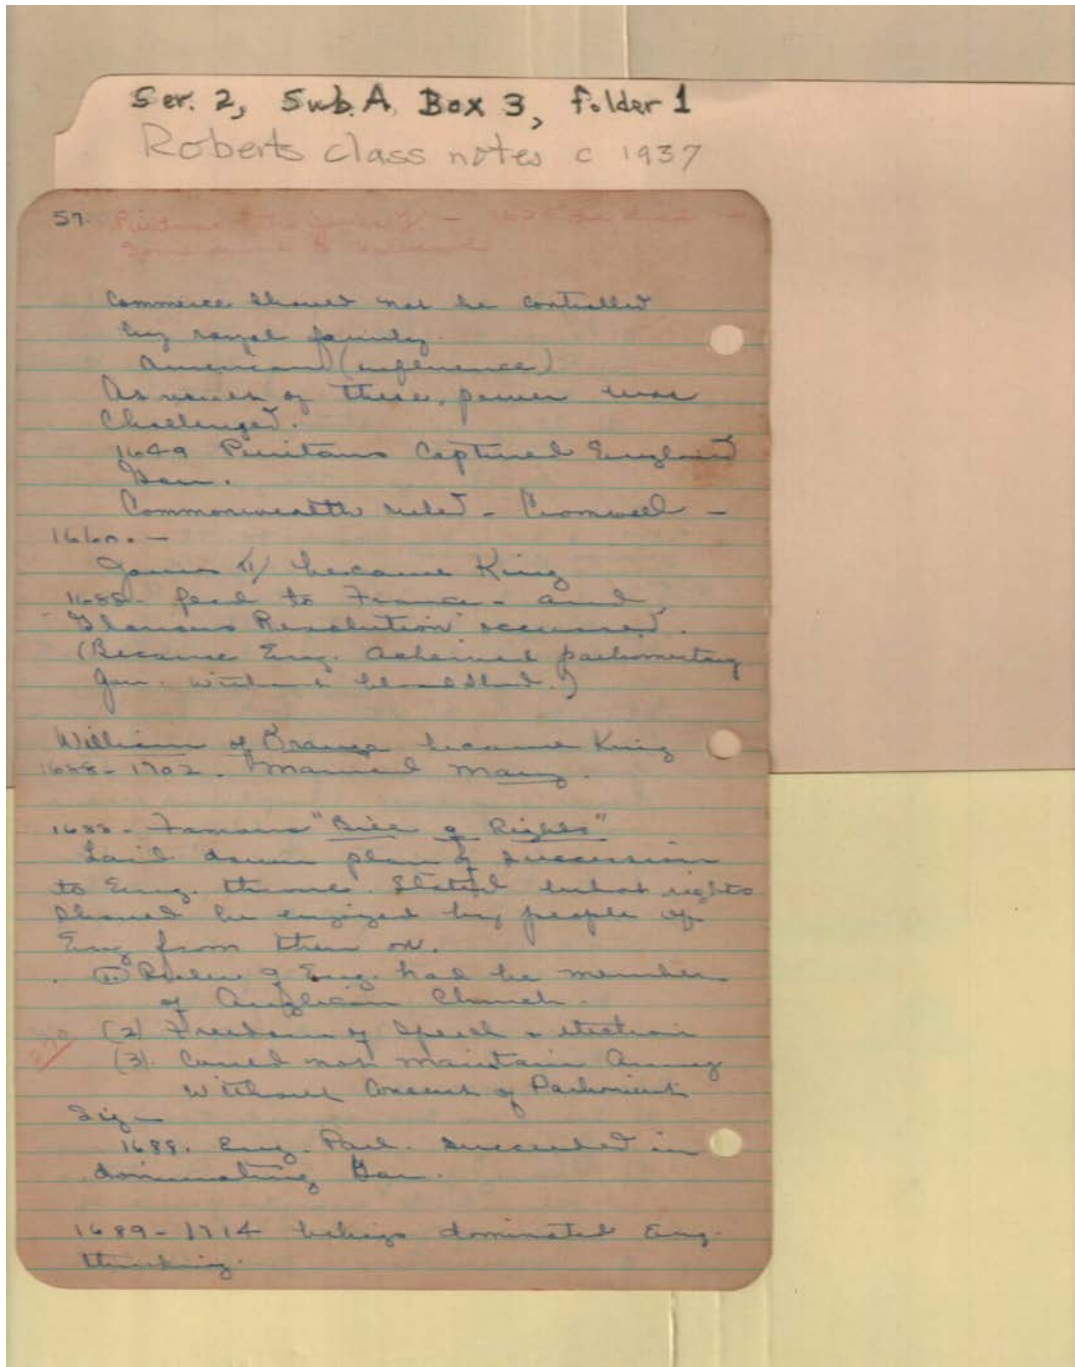 Ser. 2, Sub. A, Box 3, folder 1
Roberts class notes c 1937
57.
Commerce should not be controlled
by royal family.
American (influence)
As result of these, power was
Challenged.
1649 Puritans Captured England
Gov.
Commonwealth ruled - Cromwell -
1660. -
James II became King
1688 - to France - and
"Glorious Revolution" occurred.
(Because Eng. achieved
Gov. without bloodshed.)
William of Orange became King
1688 - 1702. Married Mary.
1688 - Famous "Bill of Rights"
Laid down plan of succession
to Eng. throne. Stated what rights
should be by people of
Eng from then on.
(1) Ruler of Eng. had be member
of Anglican Church.
(2) Freedom of Speech +
(3) Could not maintain Army
without Consent of
Sig -
1688. Eng. Parl. succeeded in
dominating Gov.
1689 - 1714 dominated Eng.
thinking.